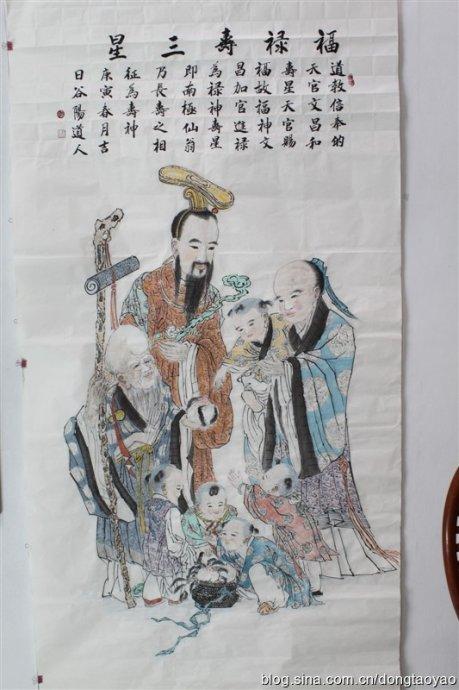 福禄壽三星
道教信奉的
天官文昌和
壽星天官賜
福故福神文
昌加官進禄
為禄神壽星
即南極仙翁
乃長壽之相
征為壽神
庚寅春月吉
日谷陽道人
blog.sina.com.cn/dongtaoyao